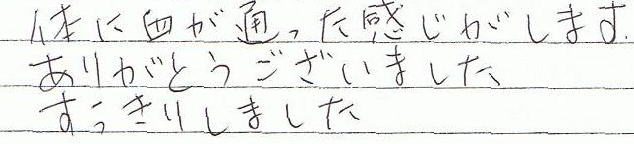 体に血が通った感じがします.
ありがとうございました、
すっきりしました